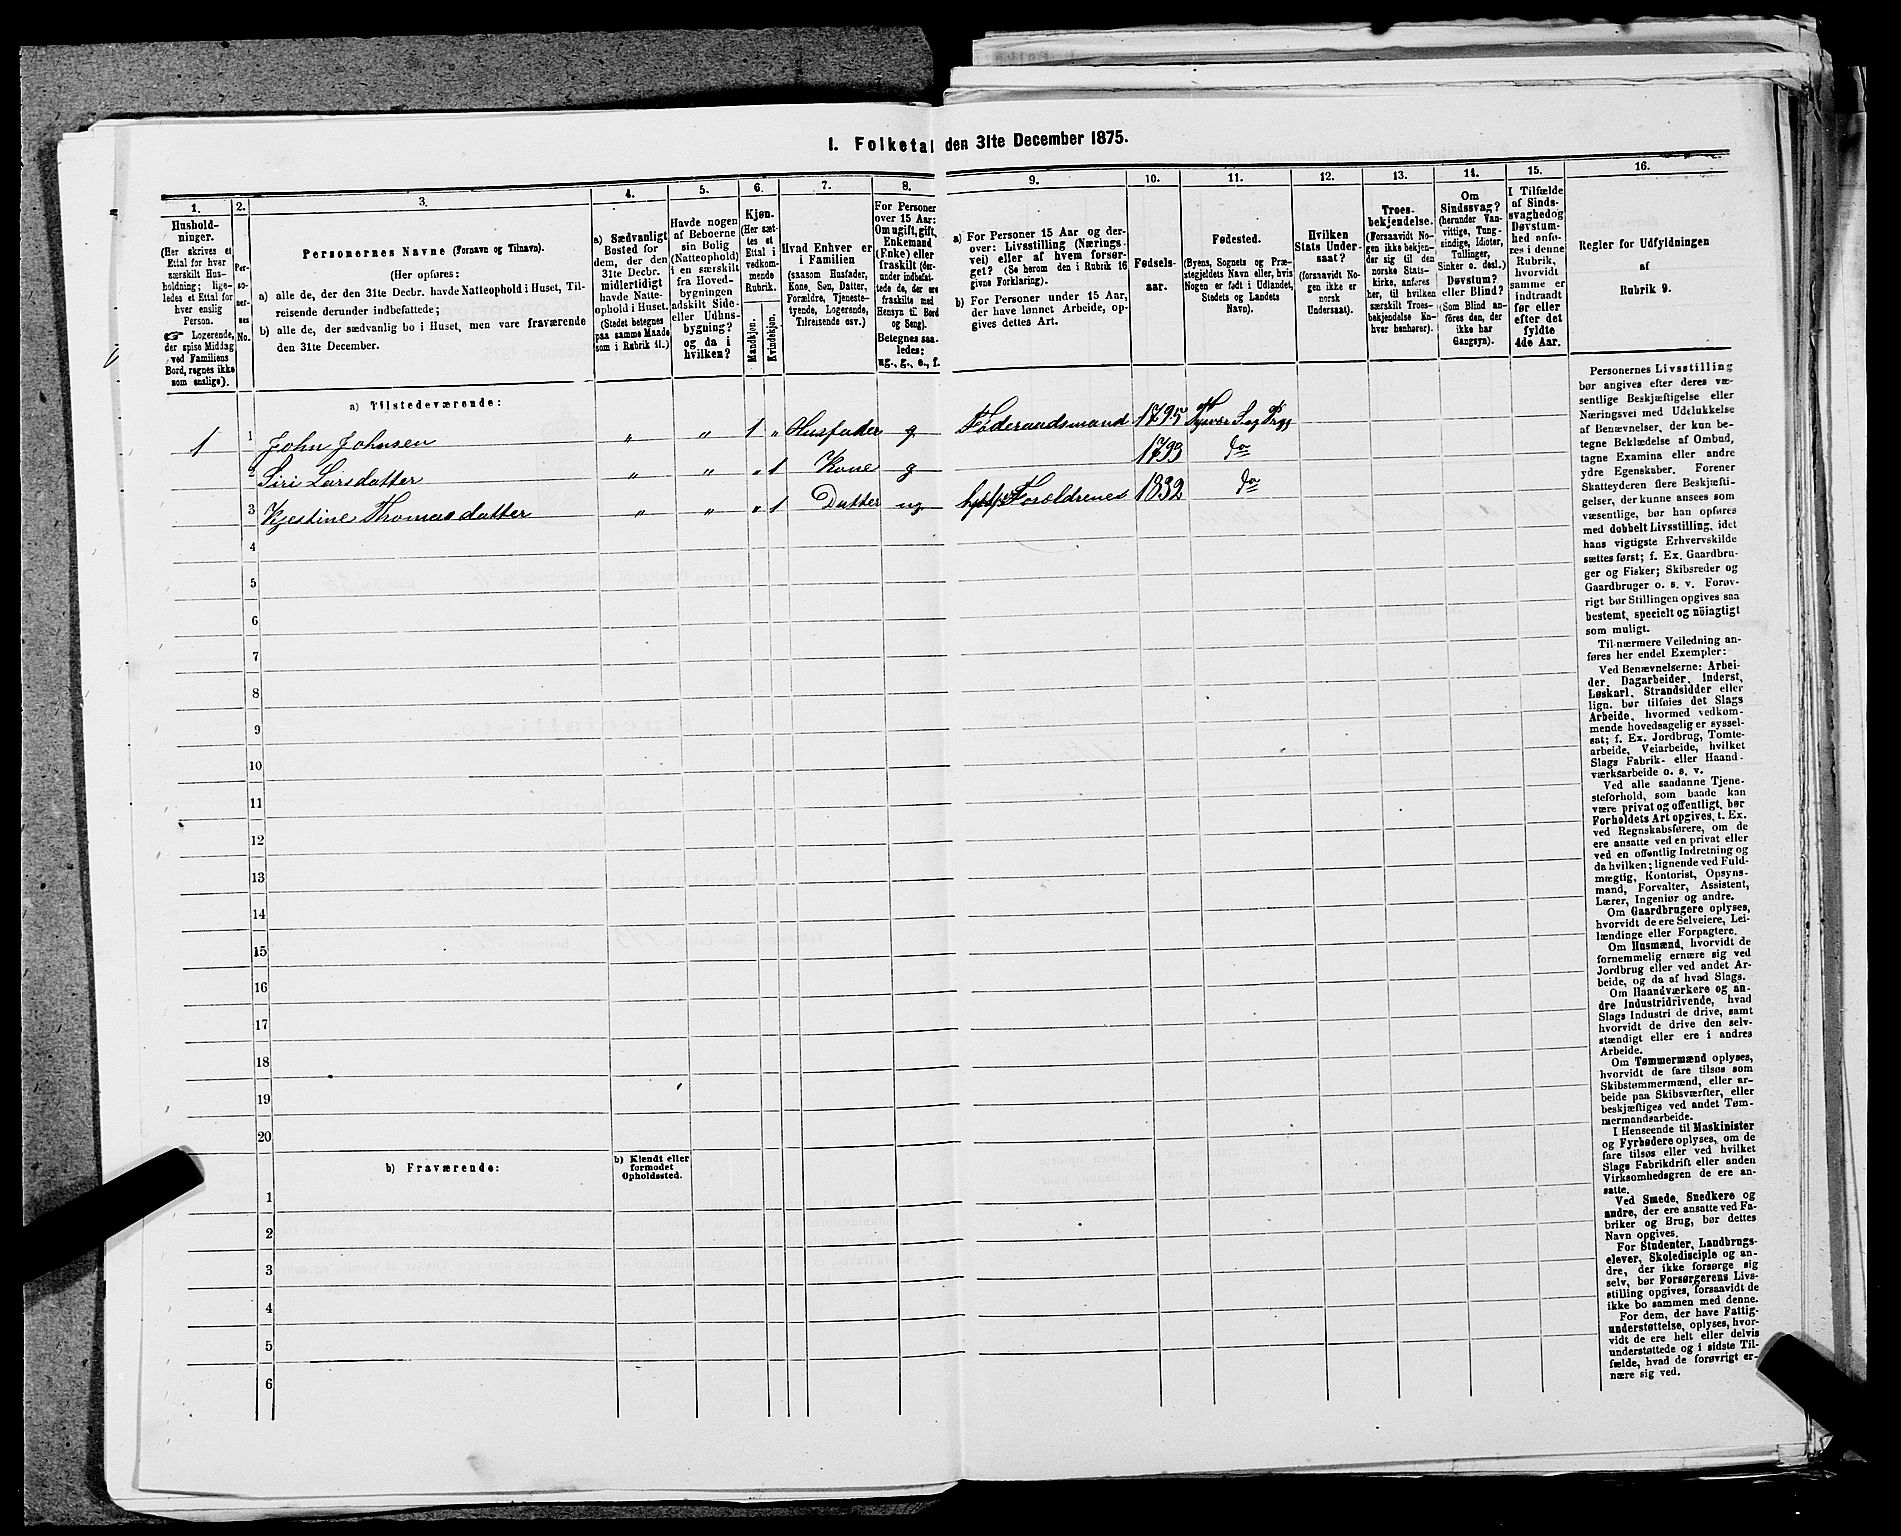 I. Folketal den 31te December 1875.
1. 2. 3. 4. 5. 6. 7. 8. 9. 10. 11. 12. 13. 14. 15. 16.
Hushold-
ninger.
(Her skrives et
Ettal for hver
særskilt Hus-
holdning; lige-
ledes et Ettal for
hver enslig
Person.
Logerende,
der spise Middag
ved Familiens
Bord, regnes ikke
som enslige).
Per-
so-
ner-
nes
No.
Personernes Navne (Fornavn og Tilnavn).
(Her opføres:
a) alle de, der den 31te Decbr. havde Natteophold i Huset, Til-
reisende derunder indbefattede;
b) alle de, der sædvanlig bo i Huset, men vare fraværende
den 31te December.
a) Sædvanligt
Bosted for
dem, der den
31te Decbr.
midlertidigt
havde Natte-
ophold i Huset.
(Stedet betegnes
paa samme Maade
som i Rubrik 11.)
Havde nogen
af Beboerne
sin Bolig
(Natteophold)
i en særskilt
fra Hoved-
bygningen
adskilt Side-
eller Udhus-
bygning?
og da i
hvilken?
Kjøn.
(Her sæt-
tes et
Ettal i
vedkom-
mende
Rubrik.
Mandkjøn.
Kvindekjøn.
Hvad Enhver er
i Familien
(saasom Husfader,
Kone, Søn, Datter,
Forældre, Tjeneste-
tyende, Logerende,
Tilreisende osv.)
For Personer
over 15 Aar:
Om ugift, gift,
Enkemand
(Enke) eller
fraskilt (der-
under indbefat-
tede de, der ere
fraskilte med
Hensyn til Bord
og Seng).
Betegnes saa-
ledes:
ug., g., e., f.
a) For Personer 15 Aar og der-
over: Livsstilling (Nærings-
vei) eller af hvem forsør-
get? (Se herom den i Rubrik 16
givne Forklaring).
b) For Personer under 15 Aar,
der have lønnet Arbeide, op-
gives dettes Art.
Fødsels-
aar.
Fødested.
(Byens, Sognets og Præ-
stegjeldets Navn eller, hvis
Nogen er født i Udlandet,
Stedets og Landets
Navn).
Hvilken
Stats Under-
saat?
(forsaavidt No-
gen ikke er
norsk
Undersaat).
Troes-
bekjendelse.
(Forsaavidt No-
gen ikke bekjen-
der sig til den
norske Stats-
kirke, anføres
her, til hvilken
særskilt Troes-
bekjendelse En-
hver henhører).
Om
Sindssvag?
(herunder Van-
vittige, Tung-
sindige, Idioter,
Tullinger,
Sinker o. desl.)
Døvstum?
eller Blind?
(Som Blind an-
føres den, der
ikke har
Gangsyn).
I Tilfælde
af Sinds-
svaghed og
Døvstum-
hed anfø-
res i denne
Rubrik,
hvorvidt
samme er
indtraadt
før eller
efter det
fyldte
4de Aar.
Regler for Udfyldningen
af
Rubrik 9.
a) Tilstedeværende:
1 1 John Johnsen " " 1 " Husfader g Føderaadsmand 1795
2 Siri Larsdatter " " " 1 Kone g 1793 do
3 Kjestine Thomasdatter " " " 1 Datter ug Forældrenes 1832 do
4
5
6
7
8
9
10
11
12
13
14
15
16
17
18
19
20
b) Fraværende:
b) Kjendt eller
formodet
Opholdssted.
1
2
3
4
5
6
Personernes Livsstilling
bør angives efter deres væ-
sentlige Beskjæftigelse eller
Næringsvei med Udelukkelse
af Benævnelser, der kun be-
tegne Beklædelse af Ombud,
tagne Examina eller andre
ydre Egenskaber. Forener
Skatteyderen flere Beskjæfti-
gelser, der kunne ansees som
væsentlige, bør han opføres
med dobbelt Livsstilling, idet
hans vigtigste Erhvervskilde
sættes først; f. Ex. Gaardbru-
ger og Fisker; Skibsreder og
Gaardbruger o. s. v. Forøv-
rigt bør Stillingen opgives saa
bestemt, specielt og nöiagtigt
som muligt.
Til nærmere Veiledning an-
føres her endel Exempler:
Ved Benævnelserne: Arbei-
der, Dagarbeider, Inderst,
Løskarl, Strandsidder eller
lign. bør tilføies det Slags
Arbeide, hvormed vedkom-
mende hovedsagelig er syssel-
sat; f. Ex. Jordbrug, Tomte-
arbeide, Veiarbeide, hvilket
Slags Fabrik- eller Haand-
værksarbeide o. s. v.
Ved alle saadanne Tjene-
steforhold, som baade kan
være privat og offentligt, bør
Forholdets Art opgives, t. Ex.
ved Regnskabsførere, om de
ere ansatte ved en privat eller
ved en offentlig Indretning og
da hvilken; lignende ved Fuld-
mægtig, Kontorist, Opsyns-
mand, Forvalter, Assistent,
Lærer, Ingeniør og andre.
Om Gaardbrugere oplyses,
hvorvidt de ere Selveiere, Lei-
lændinge eller Forpagtere.
Om Husmænd, hvorvidt de
fornemmelig ernære sig ved
Jordbrug eller ved andet Ar-
beide, og da af hvad Slags.
Om Haandværkere og an-
dre Industridrivende, hvad
Slags Industri de drive, samt
hvorvidt de drive den selv-
stændigt eller ere i andres
Arbeide.
Om Tømmermænd oplyses,
hvorvidt de fare tilsøs som
Skibstømmermænd, eller ar-
beide paa Skibsværfter, eller
beskjæftiges ved andet Tøm-
mermandsarbeide.
I Henseende til Maskinister
og Fyrbødere oplyses, om de
fare tilsøs eller ved hvilket
Slags Fabrikdrift eller anden
Virksomhedsgren de ere an-
satte.
Ved Smede, Snedkere og
andre, der ere ansatte ved Fa-
briker og Brug, bør dettes
Navn opgives.
For Studenter, Landbrugs-
elever, Skoledisciple og an-
dre, der ikke forsørge sig
selv, bør Forsørgerens Livs-
stilling opgives, forsaavidt de
ikke bo sammen med denne.
For dem, der have Fattig-
understøttelse, oplyses, hvor-
vidt de ere helt eller delvis
understøttede og i sidste Til-
fælde, hvad de forøvrigt er-
nære sig ved.